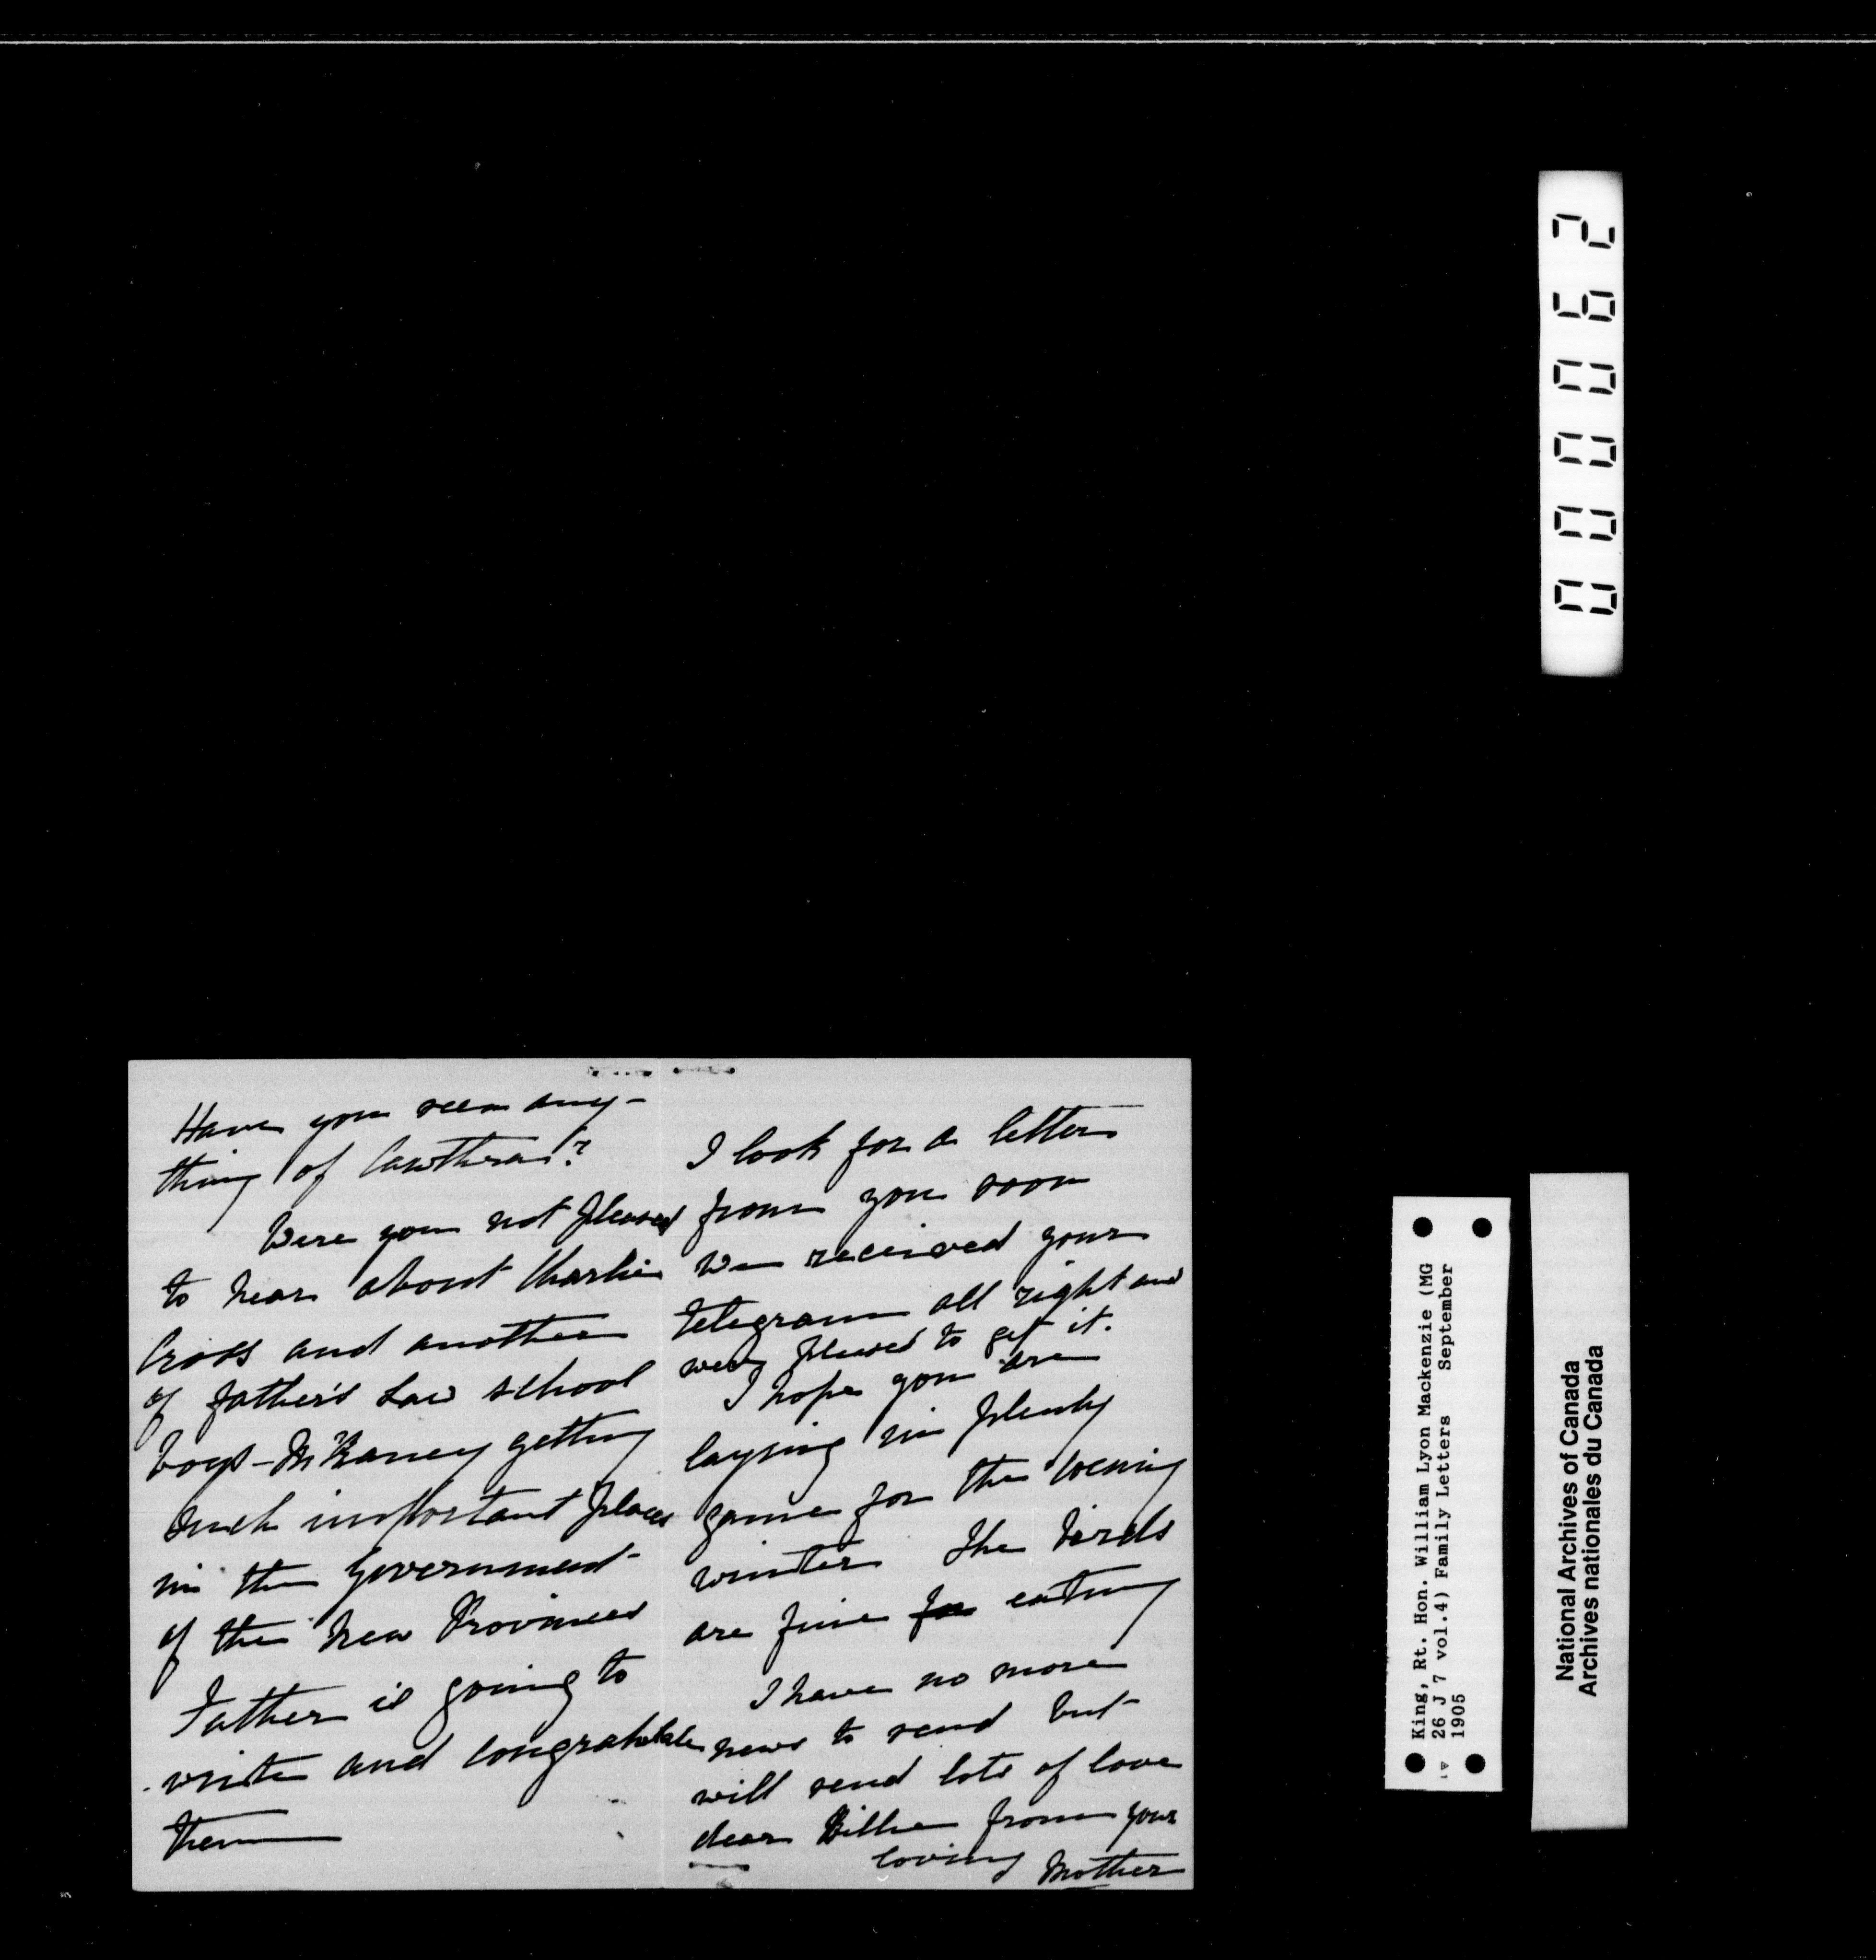 Have you seen any-
thing of Cawthra?
Were you not pleased
to hear about Charlie
Cross and another
of father's Law school
boys - getting
such important places
in the Government
of the new Provinces
Father is going to
write and congratulate
them
I look for a letter
from you soon
We received your
telegram all right and
were pleased to get it.
I hope you are
laying in plenty
game for the coming
winter The birds
are fine for eating
I have no more
news to send but
will send lots of love
dear Billie from your
loving Mother
000062
King, Rt. Hon. William Lyon Mackenzie (MG
26 J 7 vol.4) Family Letters September
1905
National Archives of Canada
Archives nationales du Canada